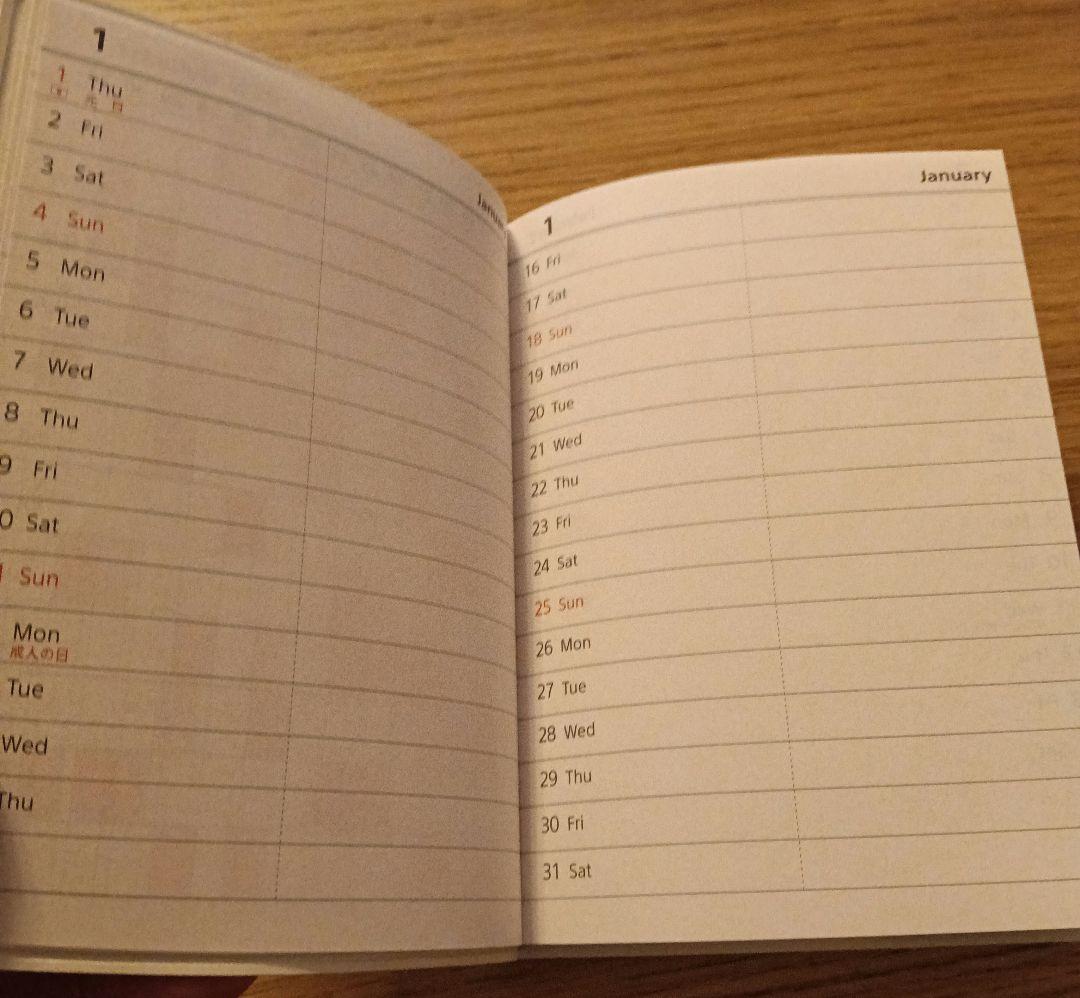 1
1 Thu
元 日
2 Fri
3 Sat
4 Sun
5 Mon
6 Tue
7 Wed
8 Thu
9 Fri
0 Sat
Sun
Mon
成人の日
Tue
Wed
Thu
1
January
16 Fri
17 Sat
18 Sun
19 Mon
20 Tue
21 Wed
22 Thu
23 Fri
24 Sat
25 Sun
26 Mon
27 Tue
28 Wed
29 Thu
30 Fri
31 Sat